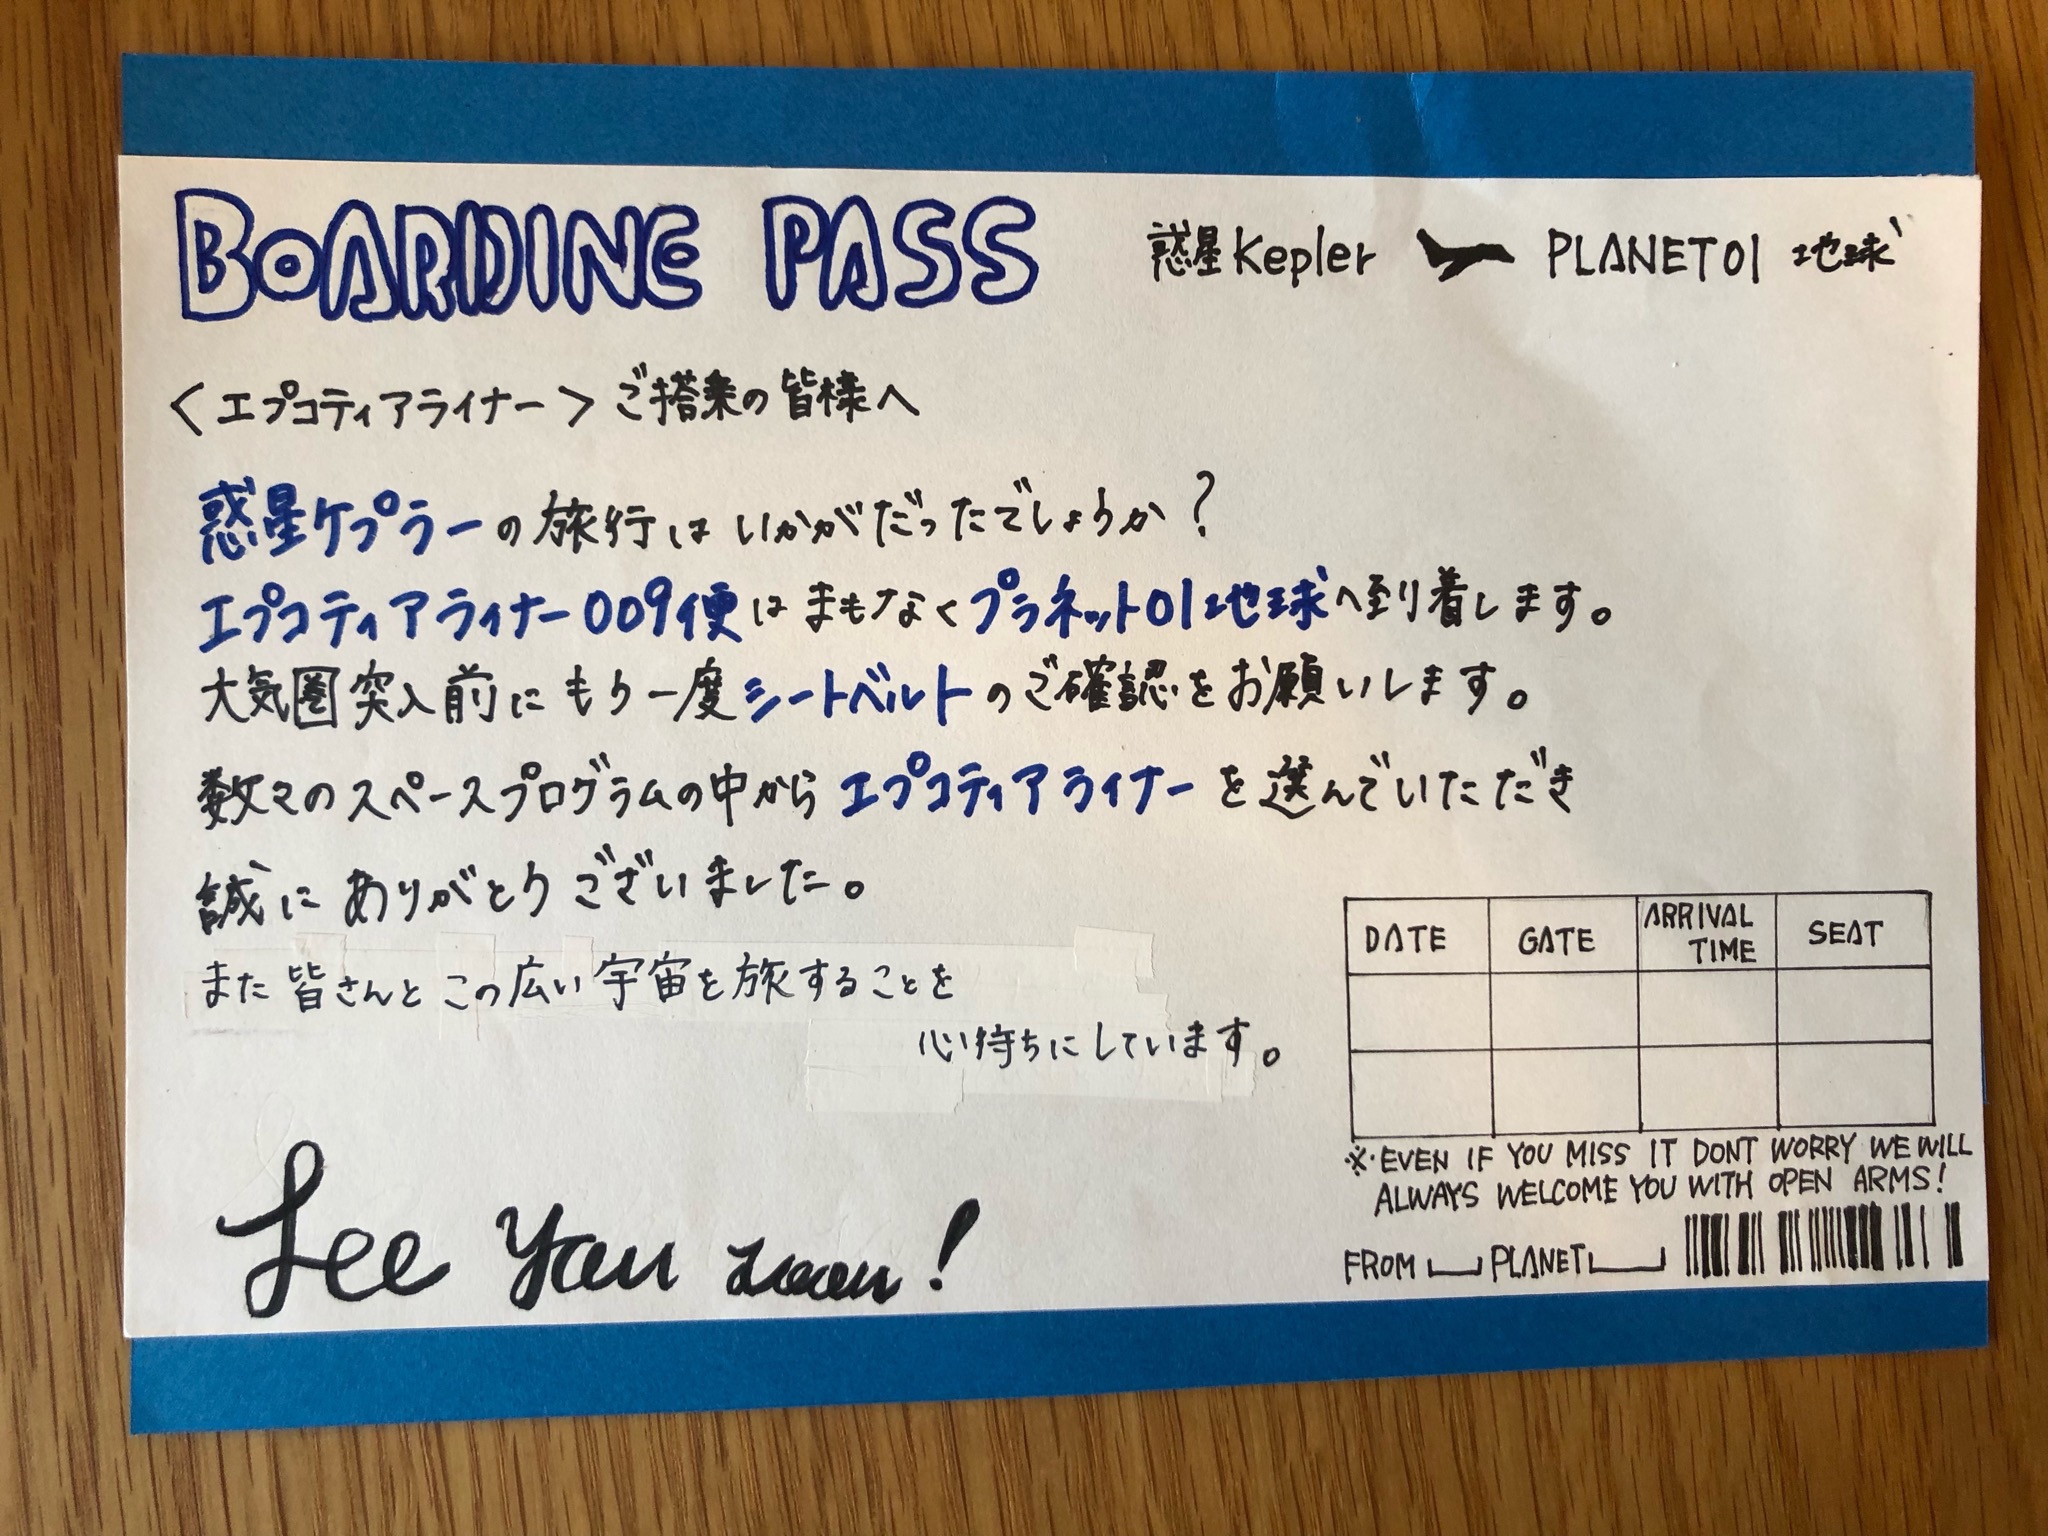 BOARDING PASS
惑星Kepler PLANET01 地球
＜エプコティアライナー＞ご搭乗の皆様へ
惑星ケプラーの旅行はいかがだったでしょうか？
エプコティアライナー009便はまもなくプラネット01地球へ到着します。
大気圏突入前にもう一度シートベルトのご確認をお願いします。
数々のスペースプログラムの中からエプコティアライナーを選んでいただき
誠にありがとうございました。
また皆さんとこの広い宇宙を旅することを
心待ちにしています。
See You soon!
DATE GATE ARRIVAL TIME SEAT
※EVEN IF YOU MISS IT DONT WORRY WE WILL
ALWAYS WELCOME YOU WITH OPEN ARMS!
FROM PLANET